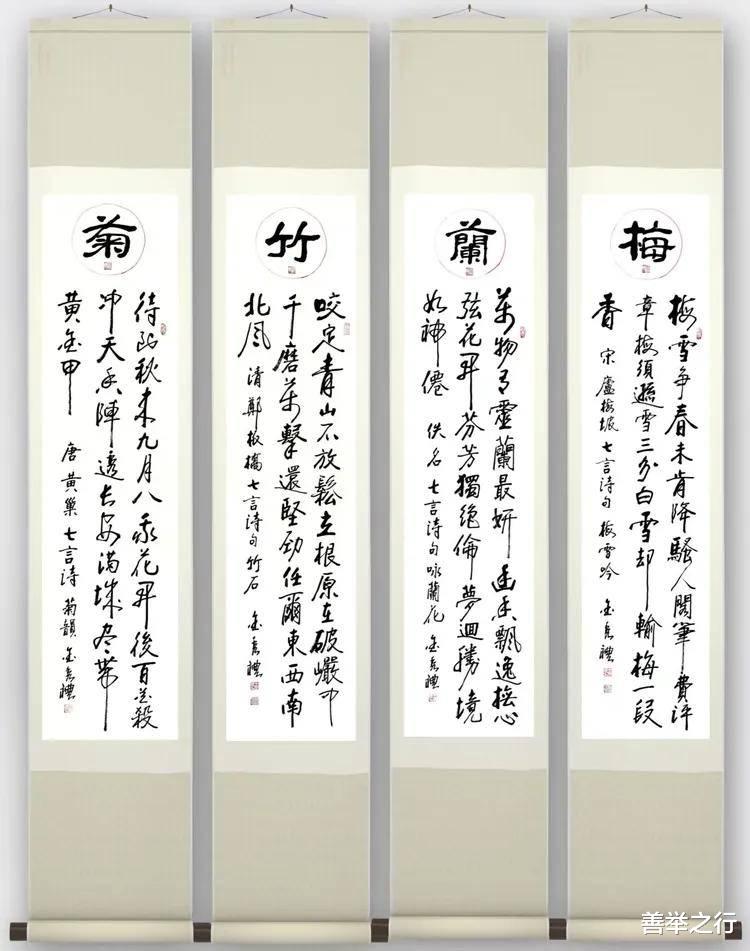 梅
梅雪争春未肯降騷人閣筆費评
章梅須遜雪三分白雪却輸梅一段
香 宋 盧梅坡 七言诗句 梅雪吟
蘭
萬物有靈蘭最妍幽香飄逸搖心
弦花开芬芳獨絕倫夢迴勝境
如神僊 佚名 七言诗句 咏蘭花
竹
咬定青山不放鬆立根原在破巖中
千磨萬擊還堅勁任爾東西南
北风 清 鄭板橋 七言诗句 竹石
菊
待到秋来九月八我花开後百花殺
冲天香陣透长安满城尽帶
黄金甲 唐 黄巢 七言诗 菊韻
善举之行